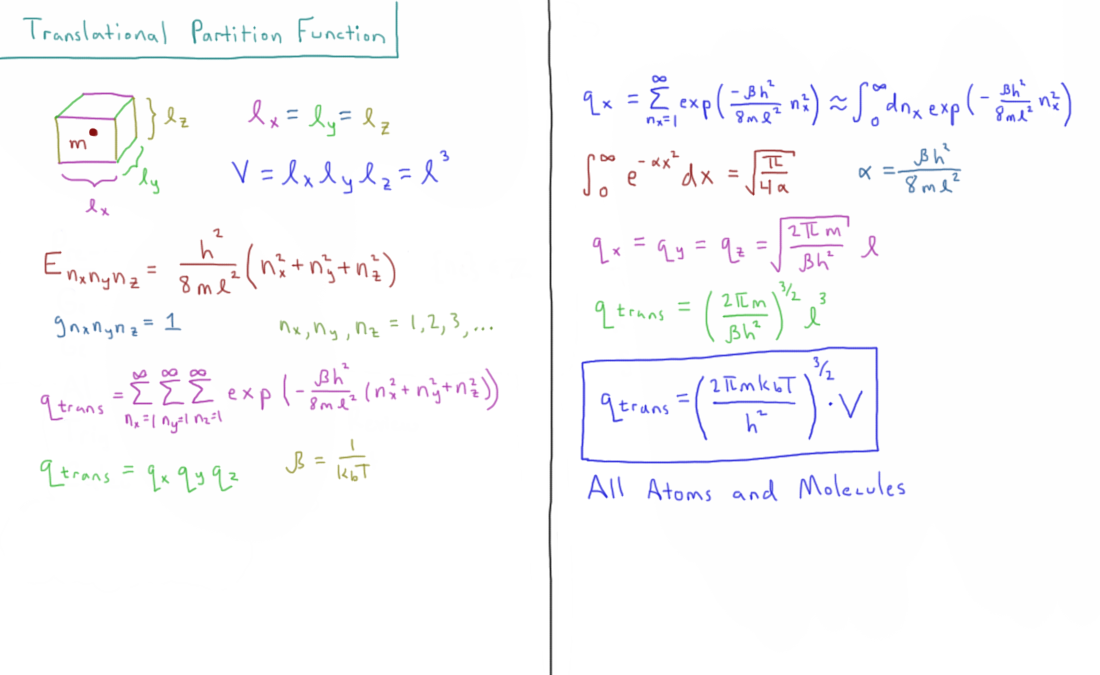 Translational Partition Function
m
l_z
l_y
l_x
l_x = l_y = l_z
V = l_x l_y l_z = l³
E_{n_x n_y n_z} = h²/8ml² (n_x² + n_y² + n_z²)
g_{n_x n_y n_z} = 1
n_x, n_y, n_z = 1, 2, 3, ...
q_trans = Σ_{n_x=1}^∞ Σ_{n_y=1}^∞ Σ_{n_z=1}^∞ exp(-βh²/8ml² (n_x² + n_y² + n_z²))
q_trans = q_x q_y q_z
β = 1/k_bT
q_x = Σ_{n_x=1}^∞ exp(-βh²/8ml² n_x²) ≈ ∫_0^∞ dn_x exp(-βh²/8ml² n_x²)
∫_0^∞ e^{-αx²} dx = √(π/4a)
α = βh²/8ml²
q_x = q_y = q_z = √(2πm/βh²) l
q_trans = (2πm/βh²)^{3/2} l³
q_trans = (2πmk_bT/h²)^{3/2} · V
All Atoms and Molecules